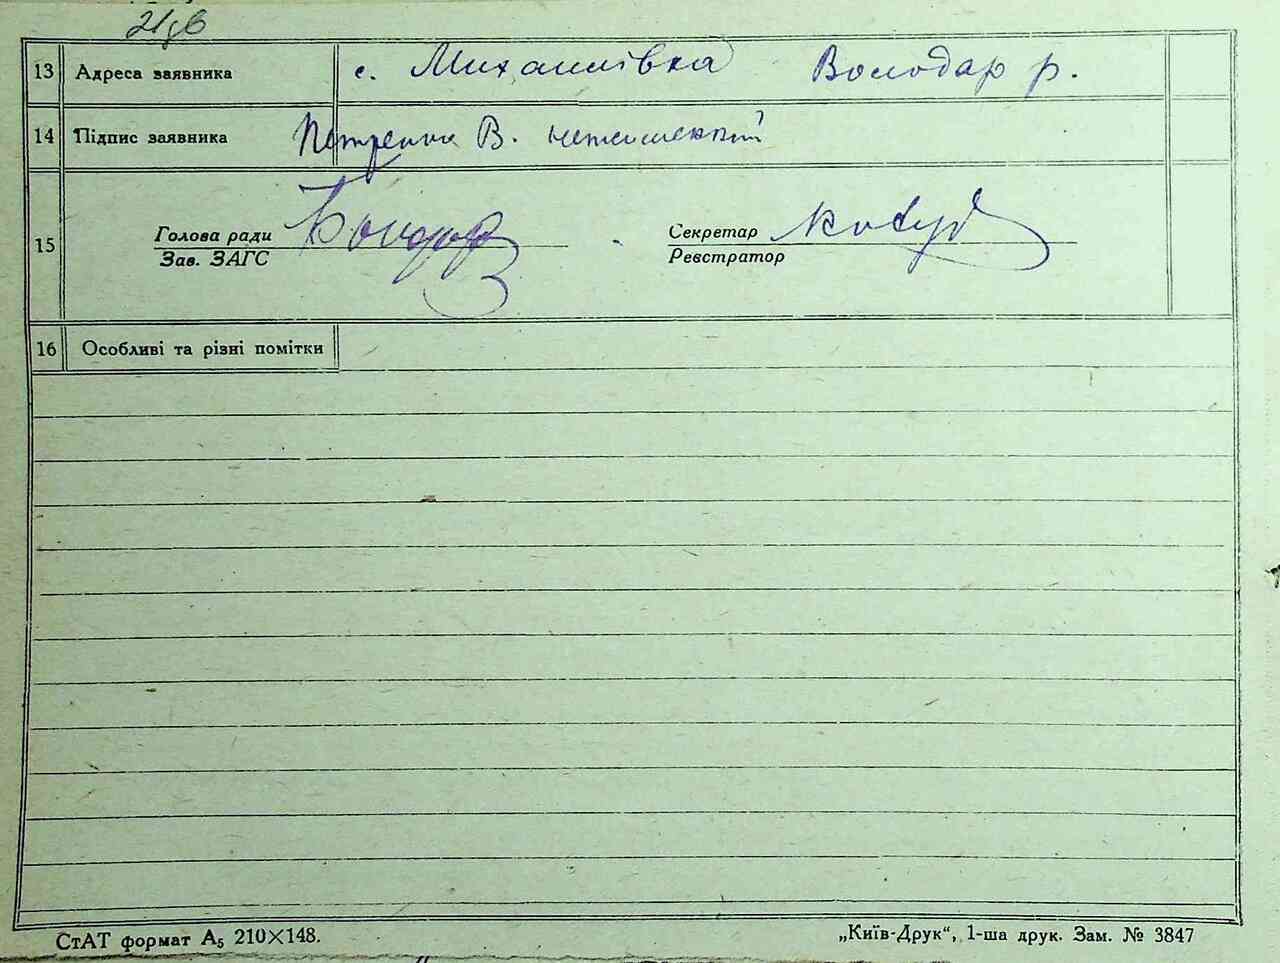 21зв
13 Адреса заявника с. Михайлівка Володар р.
14 Підпис заявника Петренко В. неписьменний
15 Голова ради Бондар Секретар
Зав. ЗАГС Реєстратор
16 Особливі та різні помітки
СтАТ формат А5 210×148. „Київ-Друк“, 1-ша друк. Зам. № 3847